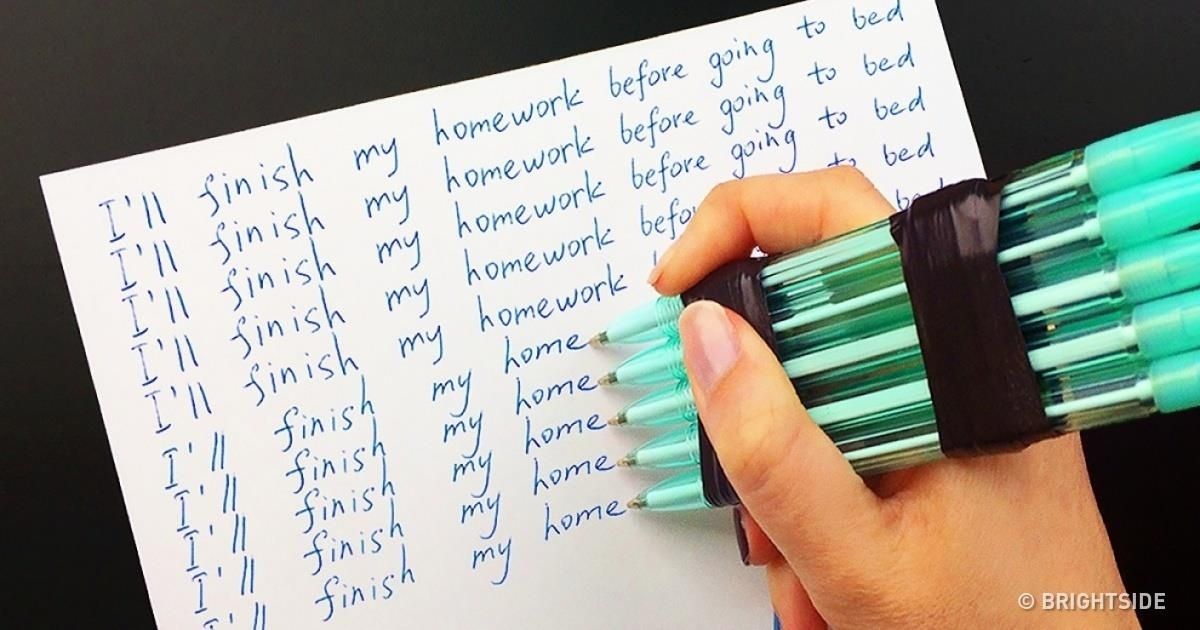 I'll finish my homework before going to bed
I'll finish my homework before going to bed
I'll finish my homework before going to bed
I'll finish my homework befo to bed
I'll finish my homework bed
I'll finish my home
I'll finish my home
I'll finish my home
I'll finish my home
I'll finish my home
© BRIGHTSIDE